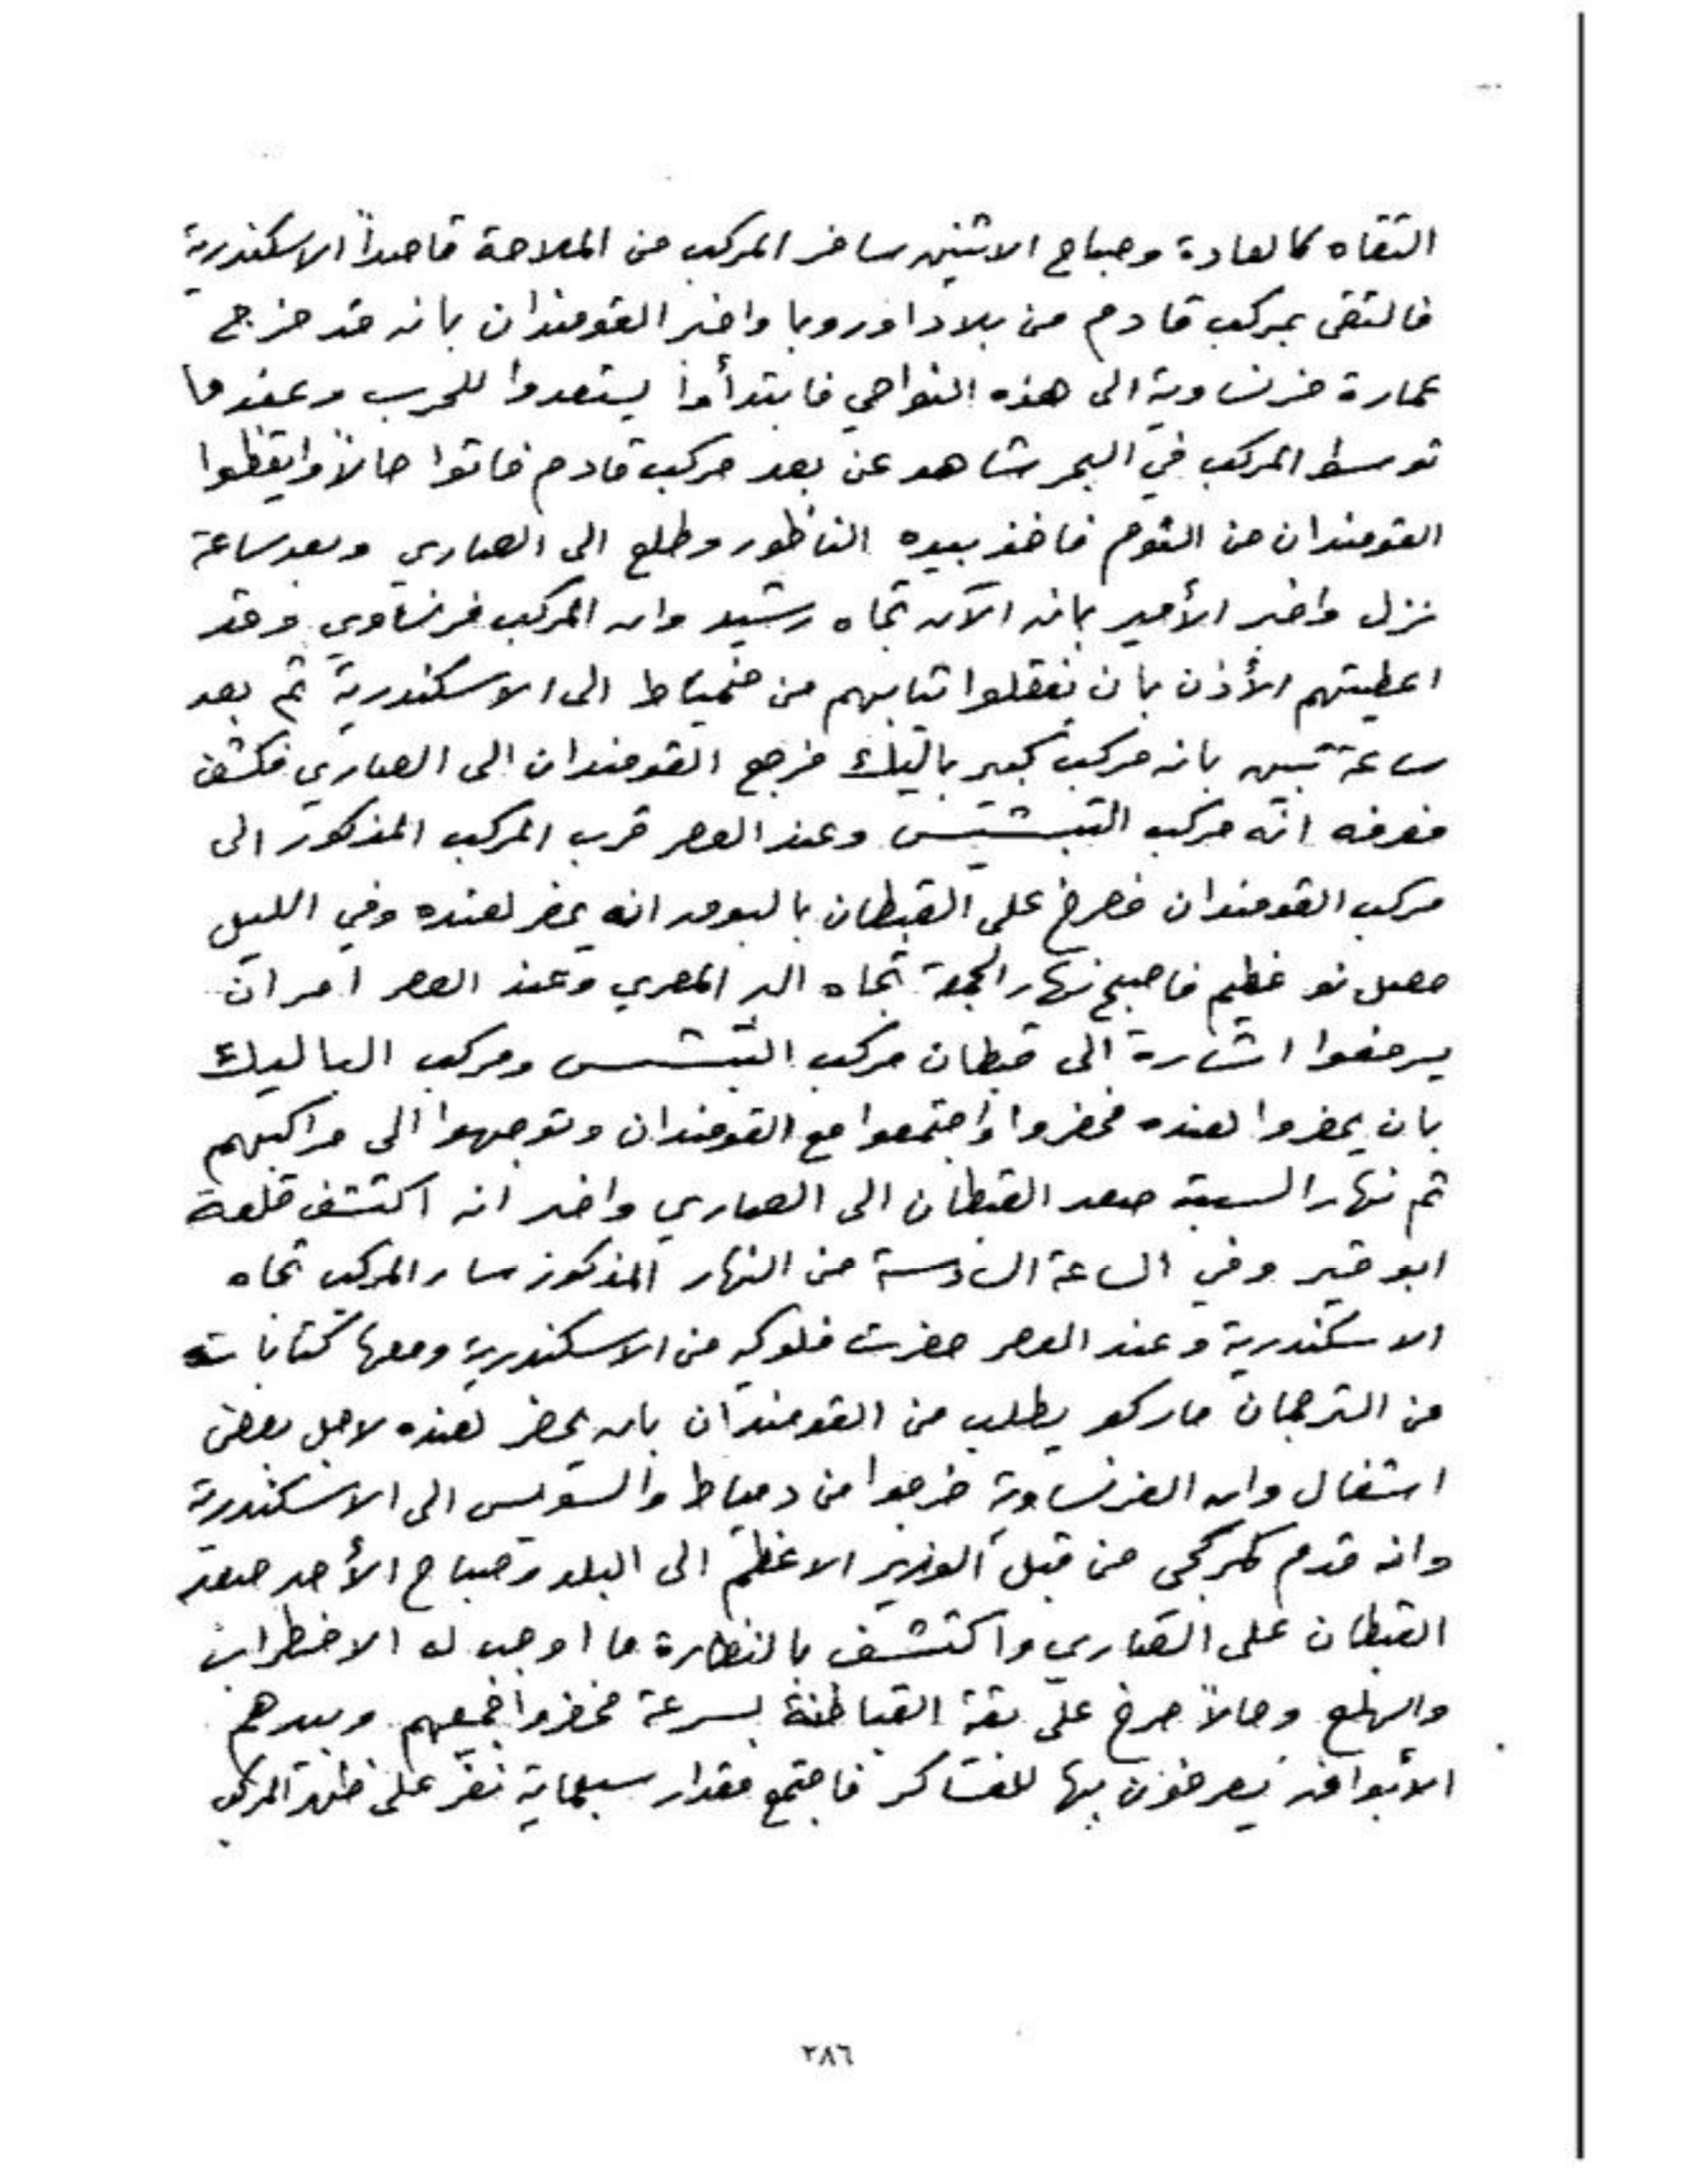 التقاه كالعادة وصباح الاثنين سافر المركب من الملاحة قاصداً الاسكندرية
فالتقى بمركب قادم من بلاد اوروبا واخبر القومندان بانه قد خرج
عمارة فرنساوية الى هذه النواحي فابتدأوا يستعدوا للحرب وعندما
توسط المركب في البحر شاهد عن بعد مركب قادم فاتوا حالاً وايقظوا
القومندان من النوم فاخذ بيده الناظور وطلع الى الصاري وبعد ساعة
نزل واخبر الأمير بانه الآن تجاه رشيد وان المركب فرنساوي وقد
اعطيتهم الأذن بان ينقلوا ثيابهم من ضمياط الى الاسكندرية ثم بعد
ساعة تبين بانه مركب كبير باليك فرجع القومندان الى الصاري فكشف
فعرفه انه مركب التبشتيس وعند العصر قرب المركب المذكور الى
مركب القومندان فصرخ على القبطان بالبوق انه يحضر لعنده وفي الليل
حصل نو عظيم فاصبح نهار الجمعة تجاه البر المصري وعند العصر امر ان
يرفعوا اشارة الى قبطان مركب التبشس ومركب الباليك
بان يحضروا لعنده فحضروا واجتمعوا مع القومندان وتوجهوا الى مراكبهم
ثم نهار السبت صعد القبطان الى الصاري واخبر انه اكتشف قلعة
ابو قير وفي الساعة السادسة من النهار المذكور سار المركب تجاه
الاسكندرية وعند العصر حضرت فلوكه من الاسكندرية ومعها كتابات
من الترجمان ماركو يطلب من القومندان بان يحضر لعنده لاجل بعض
اشغال وان الفرنساوية خرجوا من دمياط والسويس الى الاسكندرية
وانه قدم كمركجي من قبل الوزير الاعظم الى البلد وصباح الأحد صعد
القبطان على الصاري واكتشف بالنظارة ما اوجب له الاضطراب
والهلع وحالاً صرخ على بقة القباطنة بسرعة فحضروا جميعهم وبيدهم
الأبواق يصرخون بها للعساكر فاجتمع مقدار سبعماية نفر على ظهر المركب
٢٨٦